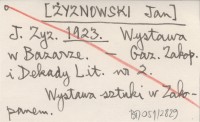 [ŻYZNOWSKI Jan]
J. Żyz. 1923. Wystawa
w Bazarze. — Gaz. Zakop.
i Dekady Lit. nr 2.
Wystawa sztuki w Zako-
panem.